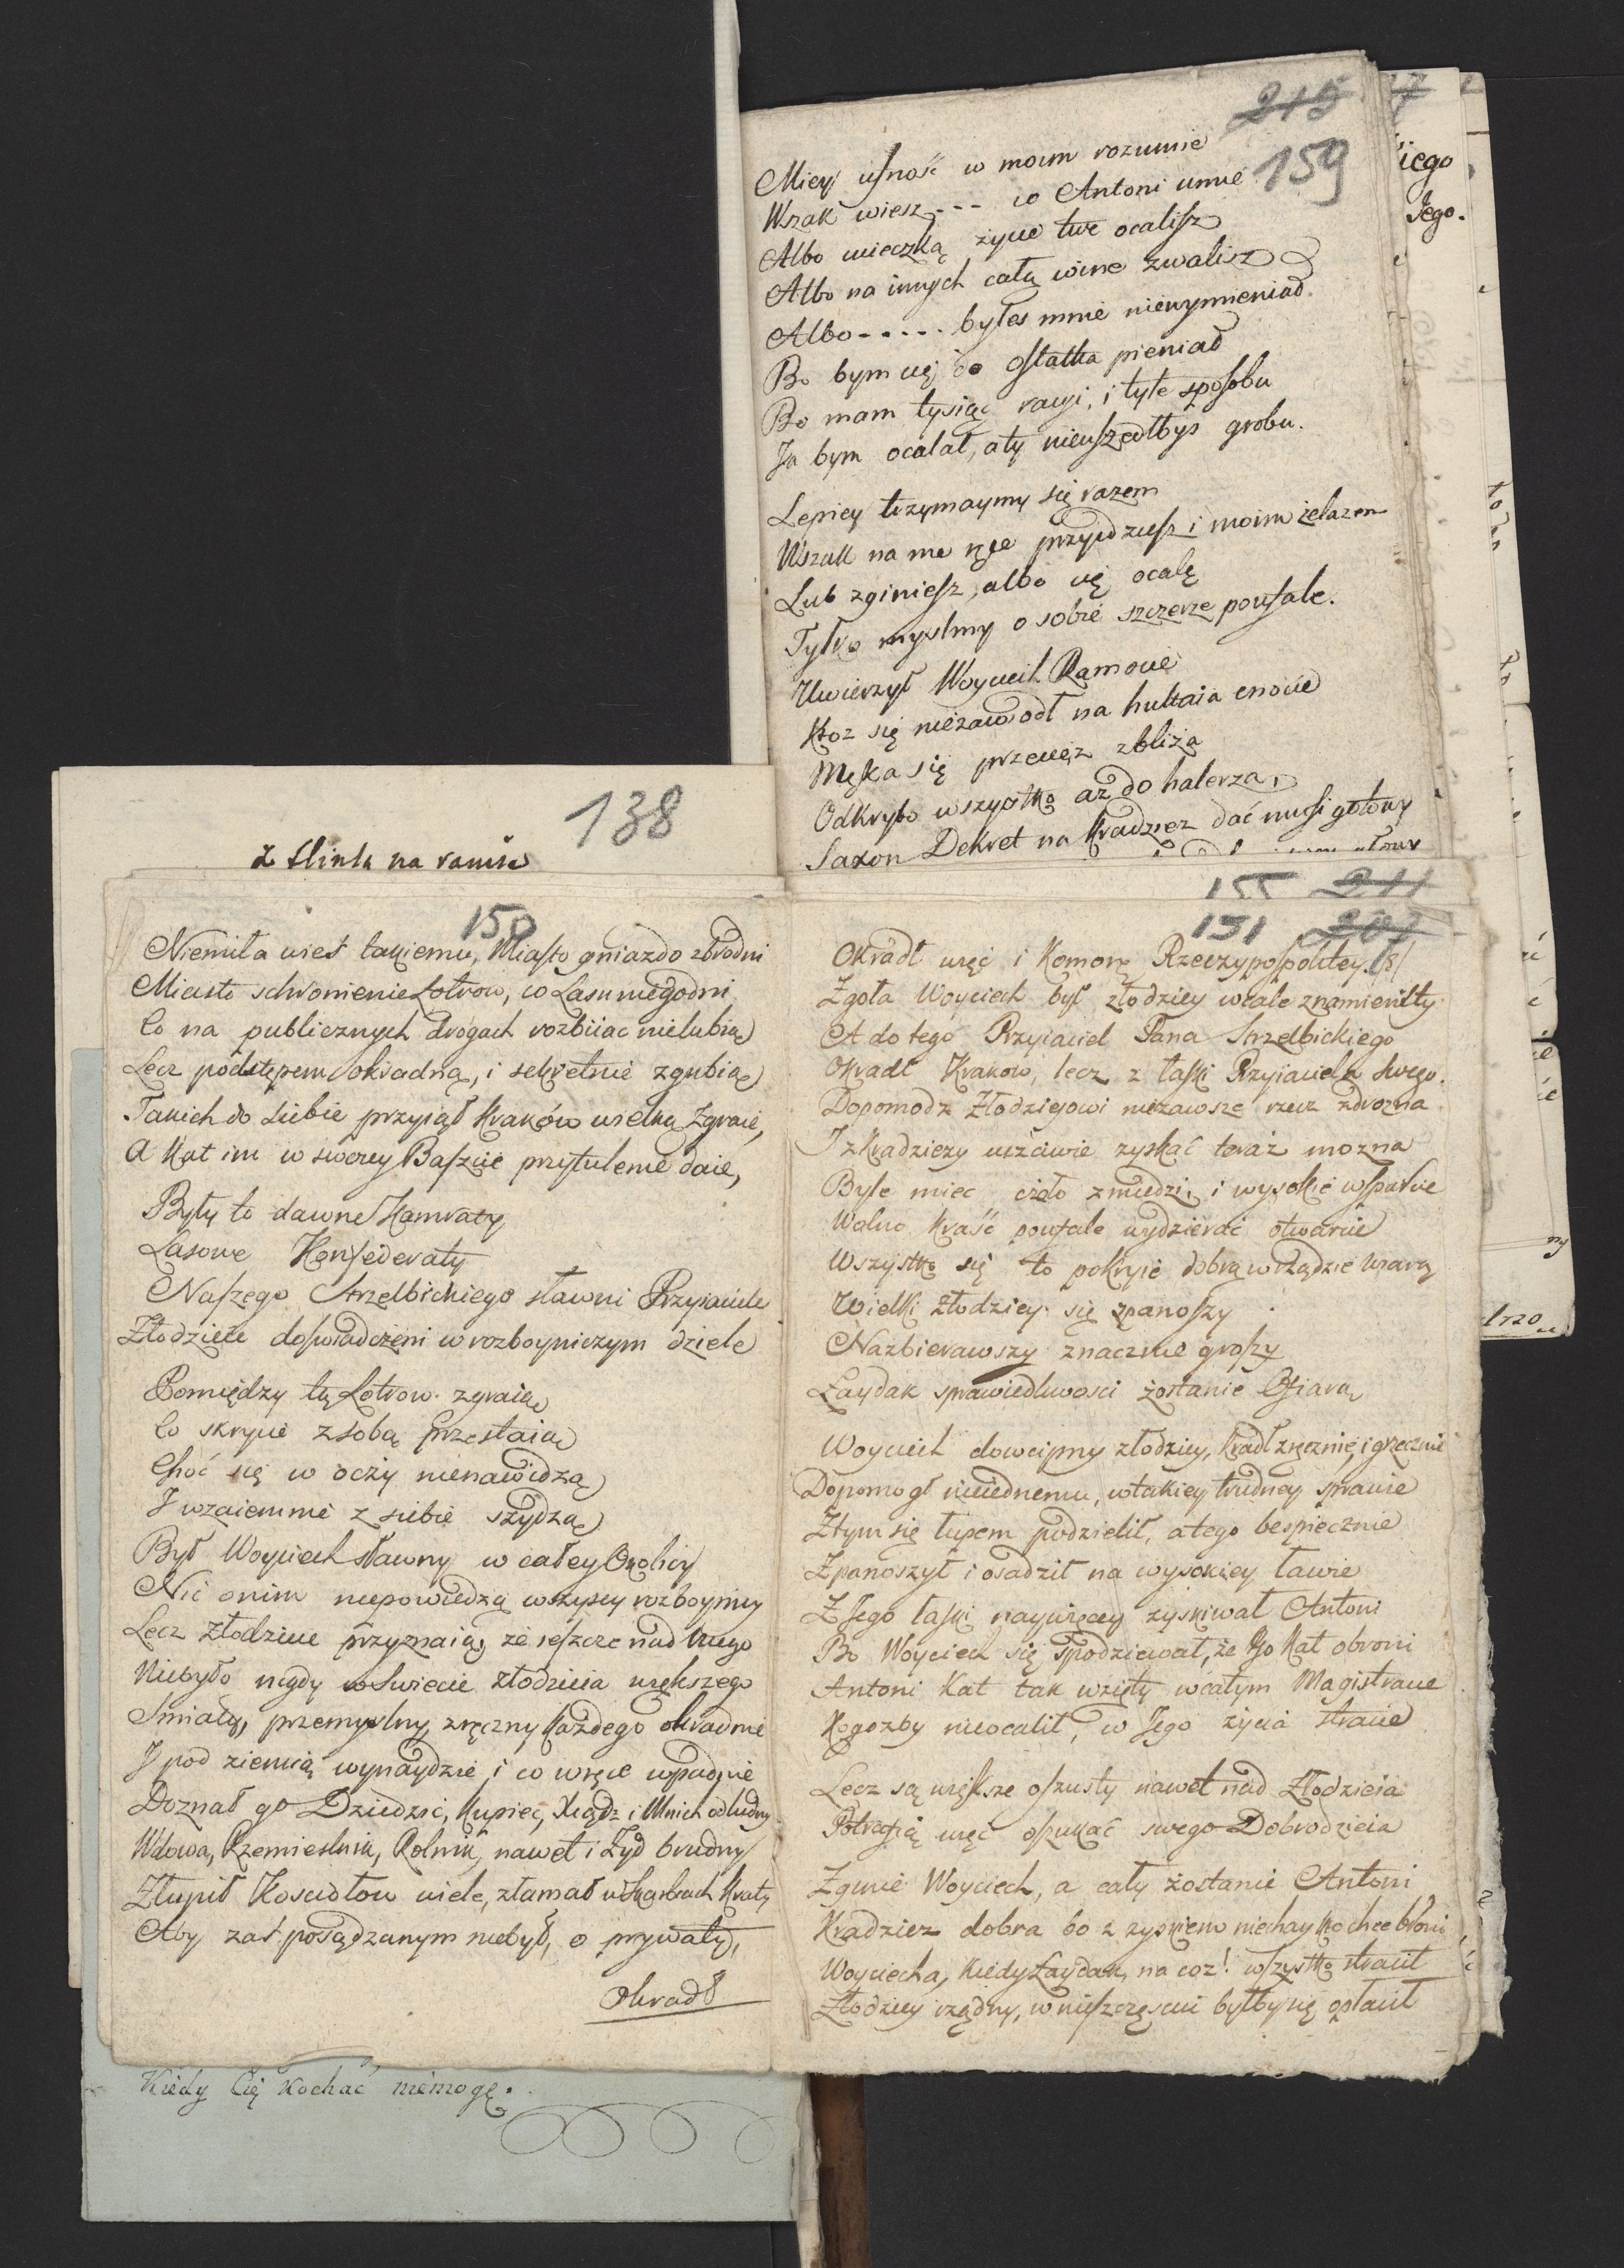 215
159
Miey ufność w moim rozumie
Wszak wiesz --- co Antoni umie
Albo ucieczką życie twe ocalisz
Albo na innych całą wine zwalisz
Albo ----- byłes mnie niewymieniał
Bo bym cię do ostatka pieniał
Bo mam tysiąc racyi, i tyle sposobu
Ja bym ocalał, aty nieuszedłbyś grobu.
Lepiey trzymaymy się razem
Wszak na me ręce przyidziesz i moim żelazem
Lub zginiesz, albo cię ocalę
Tylko myslmy o sobie szczerze poufale.
Uwierzył Woyciech Ramocie
Ktoz się niezawiodł na hultaia cnocie
Męka się przecież zbliża
Odkryto wszystko aż do halerza
Saxon Dekret na Kradzież dać musi gotowy
iego
Jego.
138
z flinta na ramie
155 211
150
Niemiła wieś takiemu, Miasto gniazdo zbrodni
Miasto schronienie Łotrow, co Lasu niegodni
Co na publicznych drogach rozbiiac nielubią
Lecz podstępem okradną, i sekretnie zgubią
Takich do siebie przyiął Kraków wielką Zgraię,
A Kat im w swoiey Baszcie przytulenie daie,
Były to dawne Kamraty
Lasowe Konfederaty
Naszego Strzelbickiego sławni Przyiaciele
Złodzieie doświadczeni w rozboyniczym dziele
Pomiędzy tą Łotrow zgraią
Co skrycie z sobą przestaią
Choć się w oczy nienawidzą
I wzaiemnie z siebie szydzą
Był Woyciech sławny w całey Okolicy
Nic onim niepowiedzą wszyscy rozboynicy
Lecz złodzieie przyznaią, że ieszcze nad niego
Niebyło nigdy w Swiecie złodzieia większego
Smiały, przemyslny, zręczny każdego okradnie
I pod ziemią wynaydzie, i co w ręce wpadnie
Doznał go Dziedzic, Kupiec, Xiądz i Mnich odludny
Wdowa, Rzemieslnik, Rolnik, nawet i Żyd brudny
Złupił Kosciołow wiele, złamał w Skarbcach Kraty
Aby zaś posądzanym niebył, o prywaty,
Okradł
151 207
Okradł więc i Komorę Rzeczypospolitey. /8/
Zgoła Woyciech był złodziey wcale znamienitty
A do tego Przyiaciel Pana Strzelbickiego
Okradł Krakow, lecz z łaski Przyiaciela swego.
Dopomodz Złodzieiowi niezawsze rzecz zdrożna
I z kradzieży uczciwie zyskać teraz mozna
Byle miec czoło z miedzi, i wysokie wsparcie
Wolno kraść poufale wydzierać otwarcie
Wszystko się to pokryie dobrą w Rządzie wiarą
Wielki złodziey się spanoszy
Nazbierawszy znacznie groszy
Łaydak sprawiedliwosci zostanie Ofiarą
Woyciech dowcipny złodziey, kradł zręcznie, i grzecznie
Dopomogł nieiednemu, w takiey trudney sprawie
Z tym się łupem podzielił, a tego bespiecznie
Zpanoszył i osadził na wysokiey ławie
Z Jego łaski naywięcey zyskiwał Antoni
Bo Woyciech się spodziewał, że Go Kat obroni
Antoni Kat tak wzięty w całym Magistracie
Kogożby nieocalił, w Jego życia stracie
Lecz są większe oszusty nawet nad Złodzieia
Potrafią więc oszukać swego Dobrodzieia
Zginie Woyciech, a cały zostanie Antoni
Kradziez dobra bo z zyskiem niechay ko chce broni
Woyciecha, kiedy Łaydak, na coz! wszystko stracił
Złodziey rządny, w nieszczęsciu byłby się opłacił
Kiedy Cię Kochać niemogę.